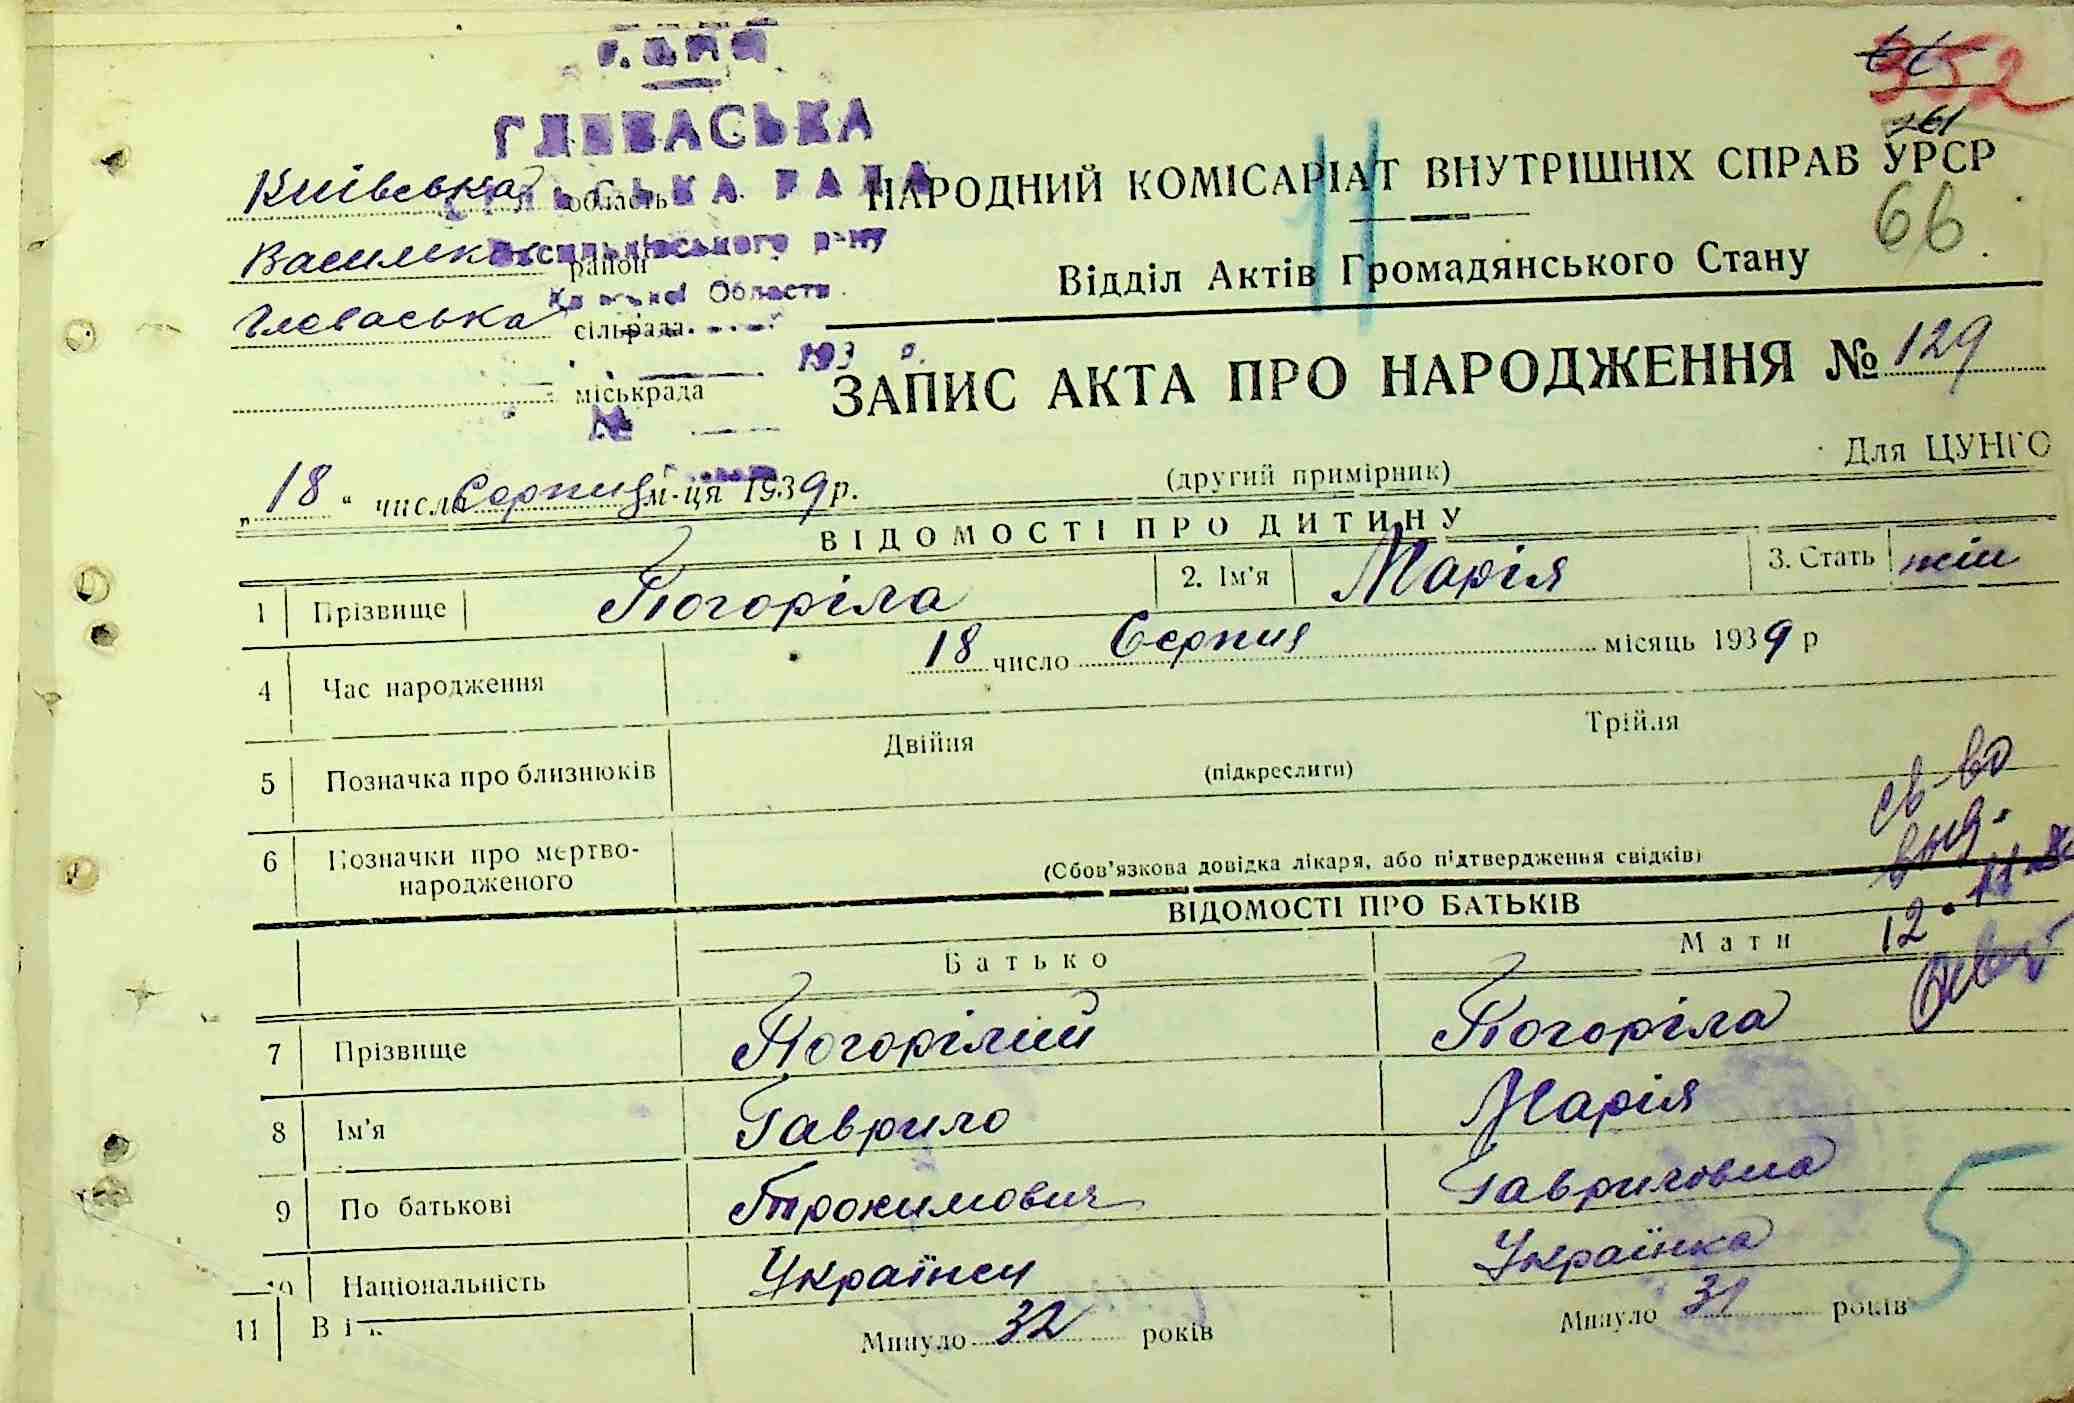 352
61
ГЛЕВАСЬКА
СІЛЬСЬКА РАДА
Васильківського р-ну
Київської Области
193 р.
№
Київська область
НАРОДНИЙ КОМІСАРІАТ ВНУТРІШНІХ СПРАВ УРСР
11
66
район
Відділ Актів Громадянського Стану
Глеваська сільрада
міськрада
ЗАПИС АКТА ПРО НАРОДЖЕННЯ № 129
Для ЦУНГО
(другий примірник)
„ 18 “ число Серпня м-ця 1939 р.
ВІДОМОСТІ ПРО ДИТИНУ
1 Прізвище Погоріла 2. Ім'я Марія 3. Стать жін
4 Час народження 18 число Серпня місяць 1939 р
5 Позначка про близнюків Двійня Трійля
(підкреслити)
6 Позначки про мертво-
народженого
(Обов'язкова довідка лікаря, або підтвердження свідків)
св-во
12.
ВІДОМОСТІ ПРО БАТЬКІВ
Батько Мати
7 Прізвище Погорілий Погоріла
8 Ім'я Гаврило Марія
9 По батькові Трохимович Гавриловна
10 Національність Українец Українка
11 Вік Минуло 32 років Минуло 31 років
5